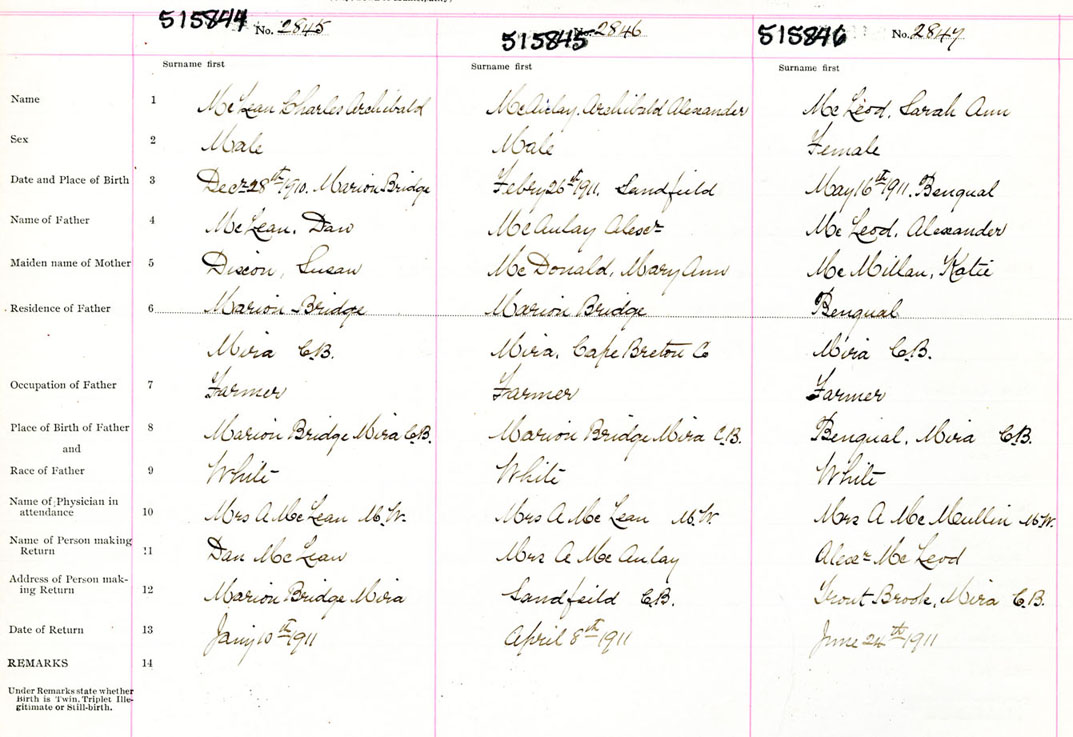 515844 No. 2845 515845 No. 2846 515846 No. 2847
Surname first Surname first Surname first
Name 1 McLean Charles Archibald McAulay, Archibald Alexander McLeod, Sarah Ann
Sex 2 Male Male Female
Date and Place of Birth 3 Decr 28th 1910. Marion Bridge Febry 26th 1911. Sandfield May 16th 1911. Bengual
Name of Father 4 McLean, Dan McAulay Alexr McLeod, Alexander
Maiden name of Mother 5 Dixon, Susan McDonald, Mary Ann McMillan, Katie
Residence of Father 6 Marion Bridge Marion Bridge Bengual
Mira C.B. Mira, Cape Breton Co Mira C.B.
Occupation of Father 7 Farmer Farmer Farmer
Place of Birth of Father 8 Marion Bridge Mira C.B. Marion Bridge Mira C.B. Bengual, Mira C.B.
and
Race of Father 9 White White White
Name of Physician in
attendance 10 Mrs A McLean M.W. Mrs A McLean M.W Mrs A McMullin M.W.
Name of Person making
Return 11 Dan McLean Mrs A McAulay Alexr McLeod
Address of Person mak-
ing Return 12 Marion Bridge Mira Sandfeild C.B. Trout Brook, Mira C.B.
Date of Return 13 Jany 10th 1911 April 8th 1911 June 24th 1911
REMARKS 14
Under Remarks state whether
Birth is Twin, Triplet Ille-
gitimate or Still-birth.